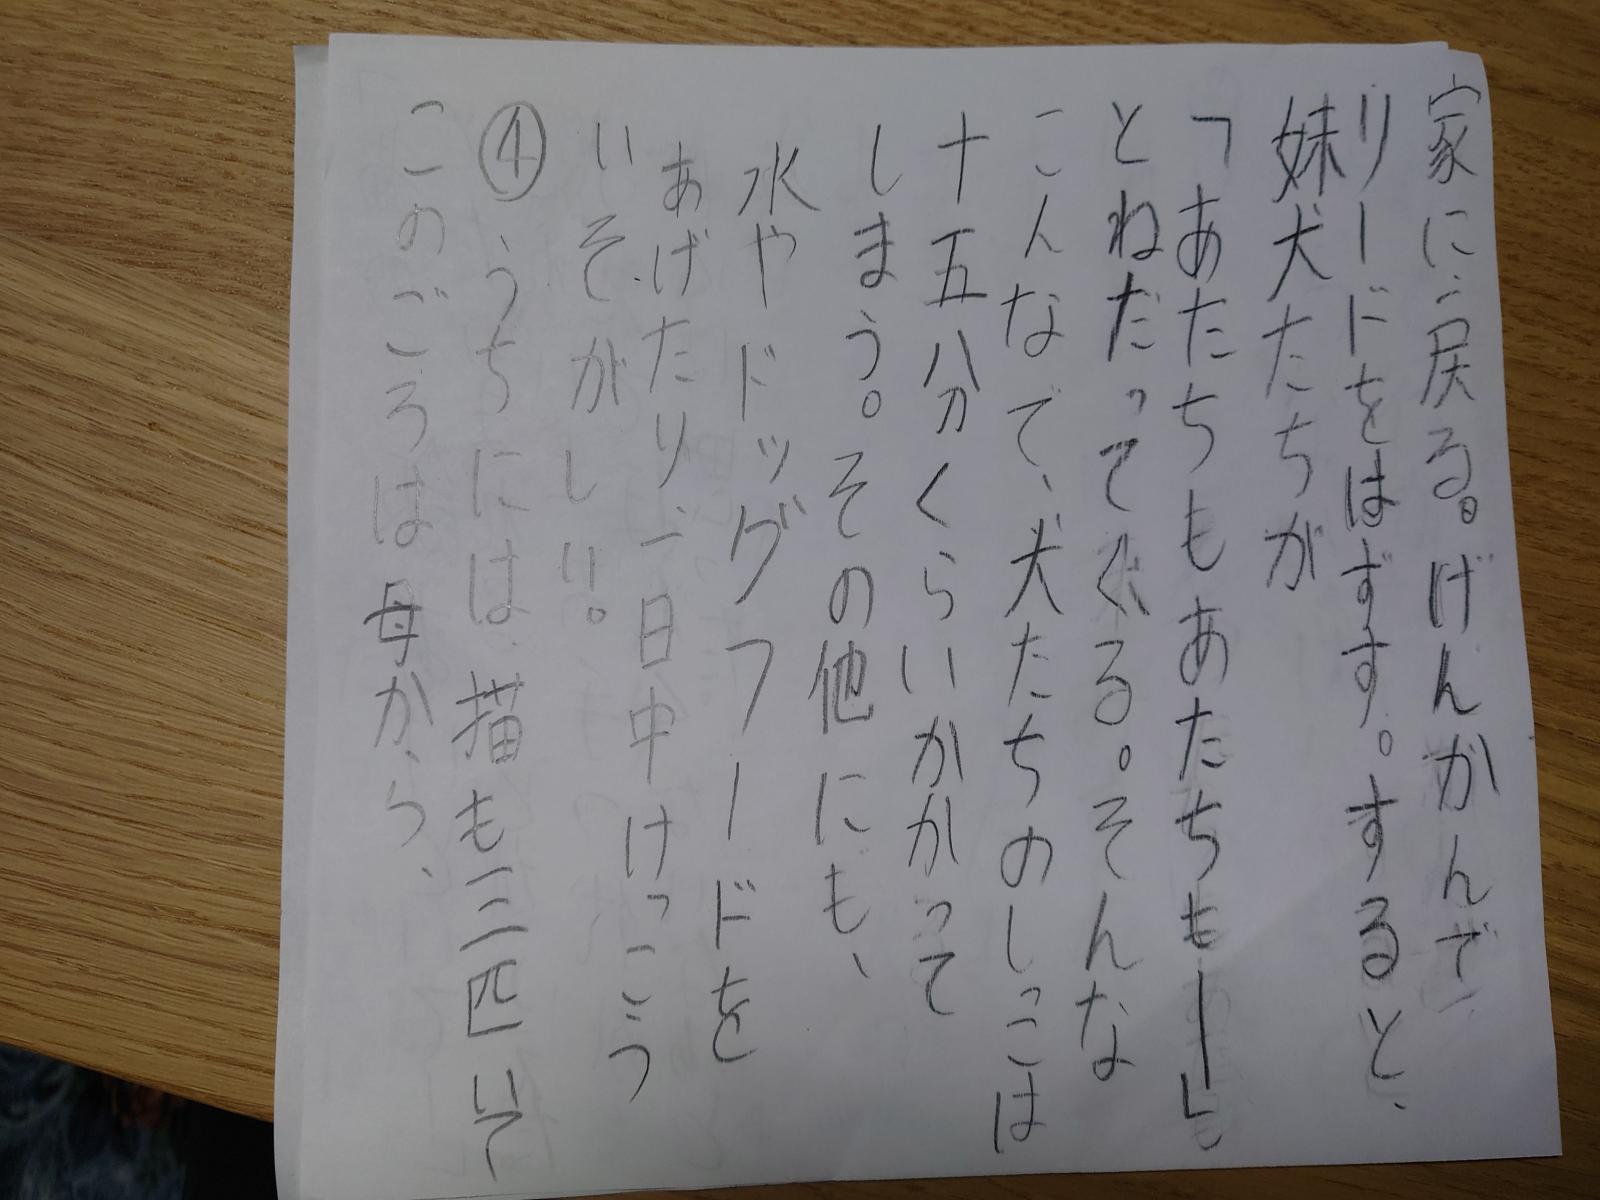 家に戻る。げんかんで、
リードをはずす。すると、
妹犬たちが
「あたちもあたちもー」
とねだってくる。そんな
こんなで、犬たちのしっこは
十五分くらいかかって
しまう。その他にも、
水やドッグフードを
あげたり、一日中けっこう
いそがしい。
④うちには、描も三匹いて
このごろは母から、